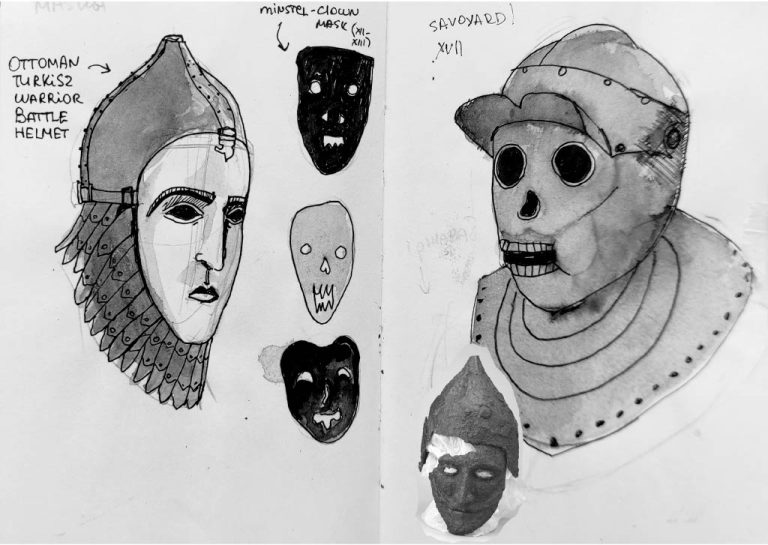 OTTOMAN
TURKISZ
WARRIOR
BATTLE
HELMET
MINSTEL-CLOWN
MASK (XII-
XIII)
SAVOYARD!
XVII